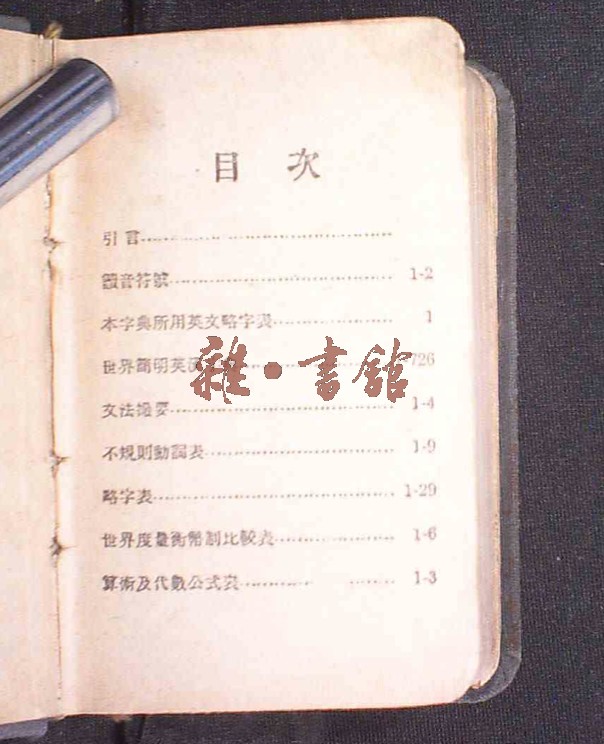 目 次
引言……
讀音符號…… 1-2
本字典所用英文略字表…… 1
世界簡明英漢 …… 726
雜·書館
文法摘要…… 1-4
不規則動詞表…… 1-9
略字表…… 1-29
世界度量衡幣制比較表…… 1-6
算術及代數公式表…… 1-3